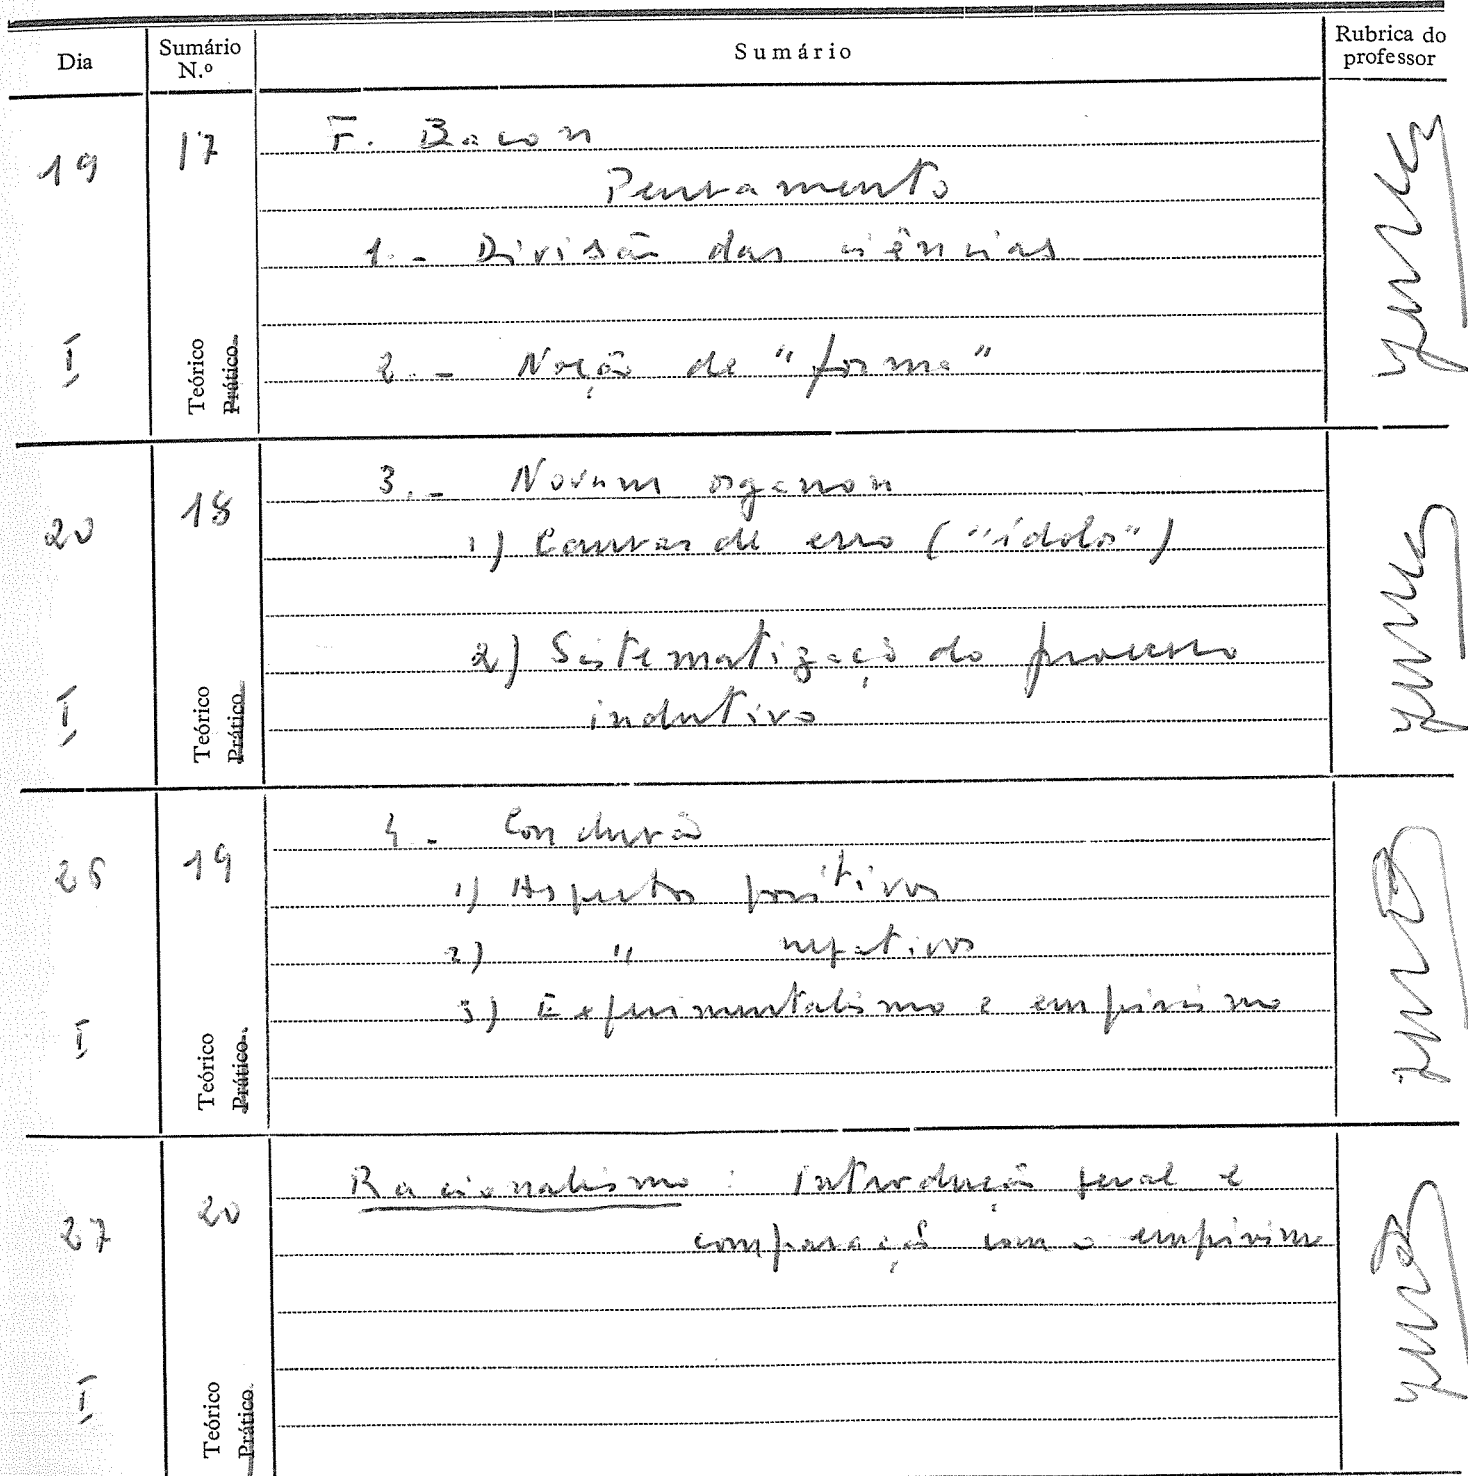 Dia
Sumário N.º
Sumário
Rubrica do professor
19
I
17
Teórico
Prático
F. Bacon
Pensamento
1. - Divisão das ciências
2. - Noção de "forma"
20
I
18
Teórico
Prático
3. - Novum organon
1) Causas de erro ("ídolos")
2) Sistematização do processo
indutivo
26
I
19
Teórico
Prático
4 - Conclusão
1) Aspectos positivos
2) " negativos
3) Experimentalismo e empirismo
27
I
20
Teórico
Prático
Racionalismo : Introdução geral e
comparação com o empirismo